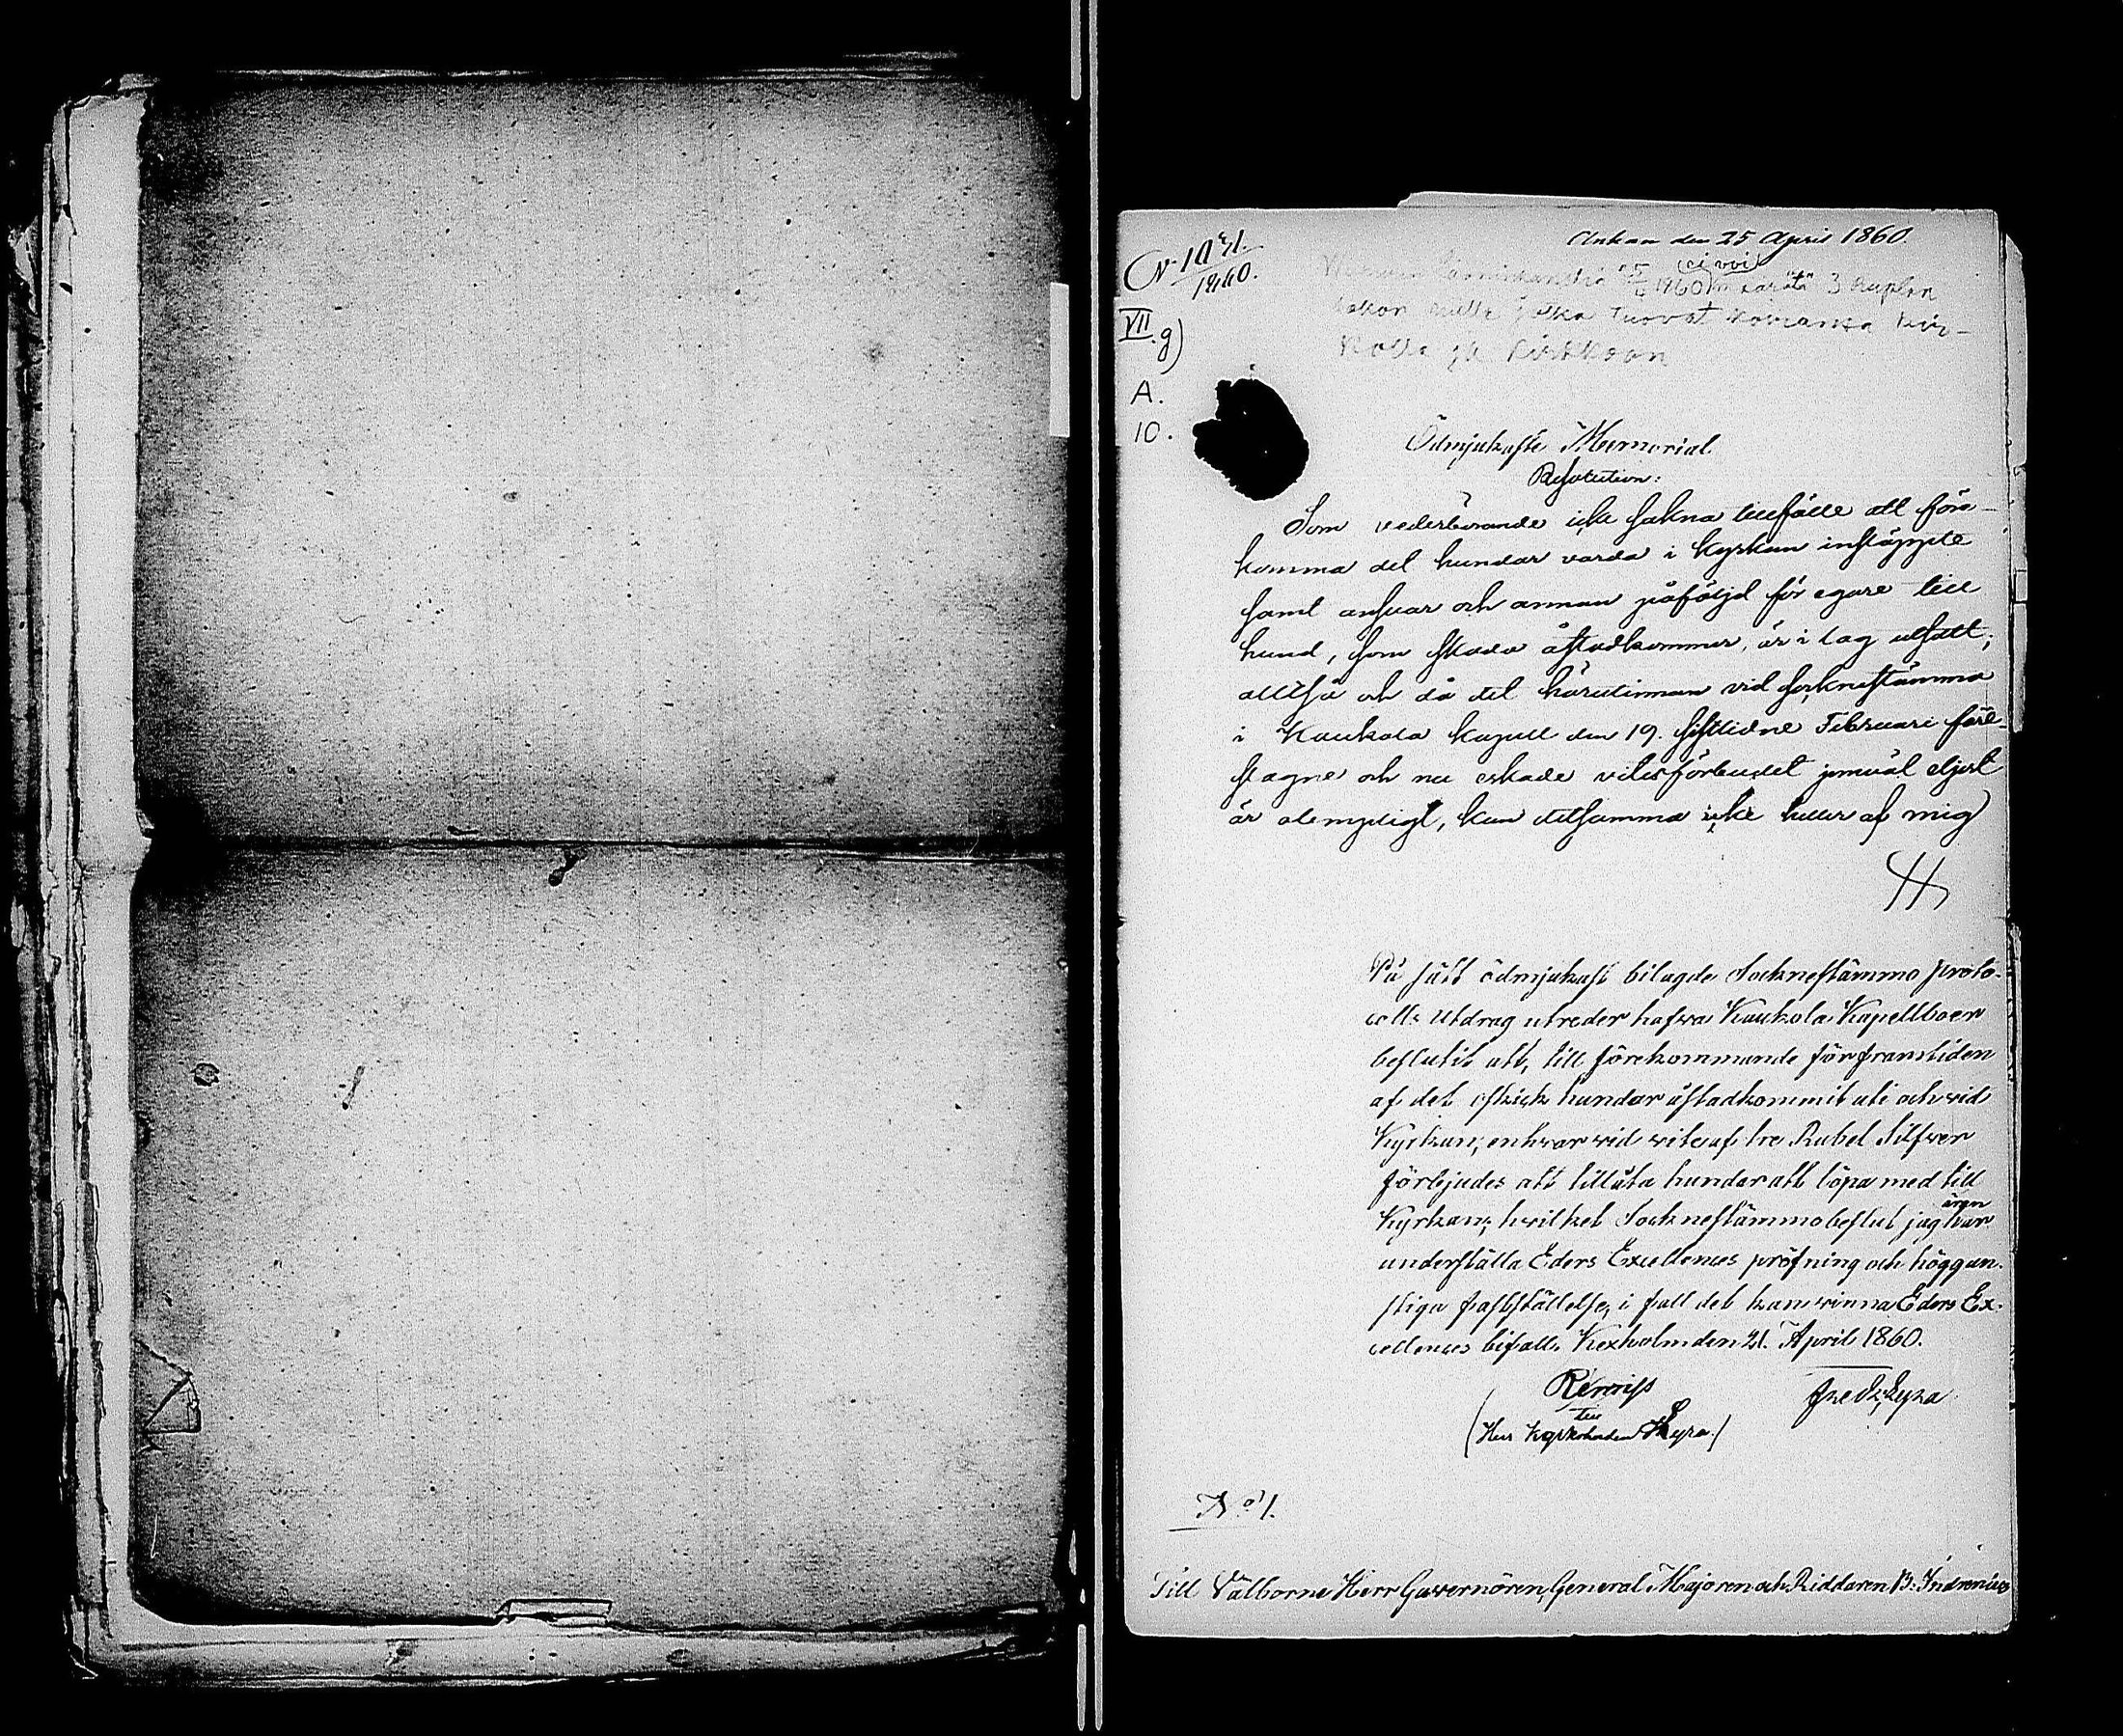 Ankom den 25 April 1860.
N 1041.
1860.
(ei voi)
1860 määrätä 3 ruplan
sakon niille jotka tuovat koiransa
kirkkoon
VII.g)
A.
10.
Ödmjukaste Memorial
Resolution:
Som vederbörande icke sakna tillfälle att före-
komma det hundar varda i Kyrkan insläppte
samt ansvar och annan påföljd för egare till
hund, som skada åstadkommer, är i lag utsatt;
alltså och då det härutinnan vid sockne stämma
i Kaukola kapell den 19. sistlidne Februari före-
slagne och nu äskade vitesförbudet jemväl eljest
är olempligt, kan detsamma icke heller af mig
På sätt ödmjukast bilagde Sockne stämmo proto-
colls Utdrag utreder hafva Kaukola Kapellboer
beslutit att, till förekommande för framtiden
af det oskick hundar åstadkommit uti och vid
Kyrkan; enhvar vid vite af tre Rubel Silfver
förbjudes att tillåta hundar att löpa med till
Kyrkan; hvilket Sockne stämmobeslut jag har
äran
underställa Eders Excellences pröfning och höggun-
stiga fastställelse, i fall det kan vinna Eders Ex-
cellences bifall. Kexholm den 21. April 1860.
Remiss
till
(Herr Kyrkoherden Skyra.)
Fredr. Skyra
No 1.
Till Välborne Herr Guvernören, General Majoren och Riddaren B: Indrenius